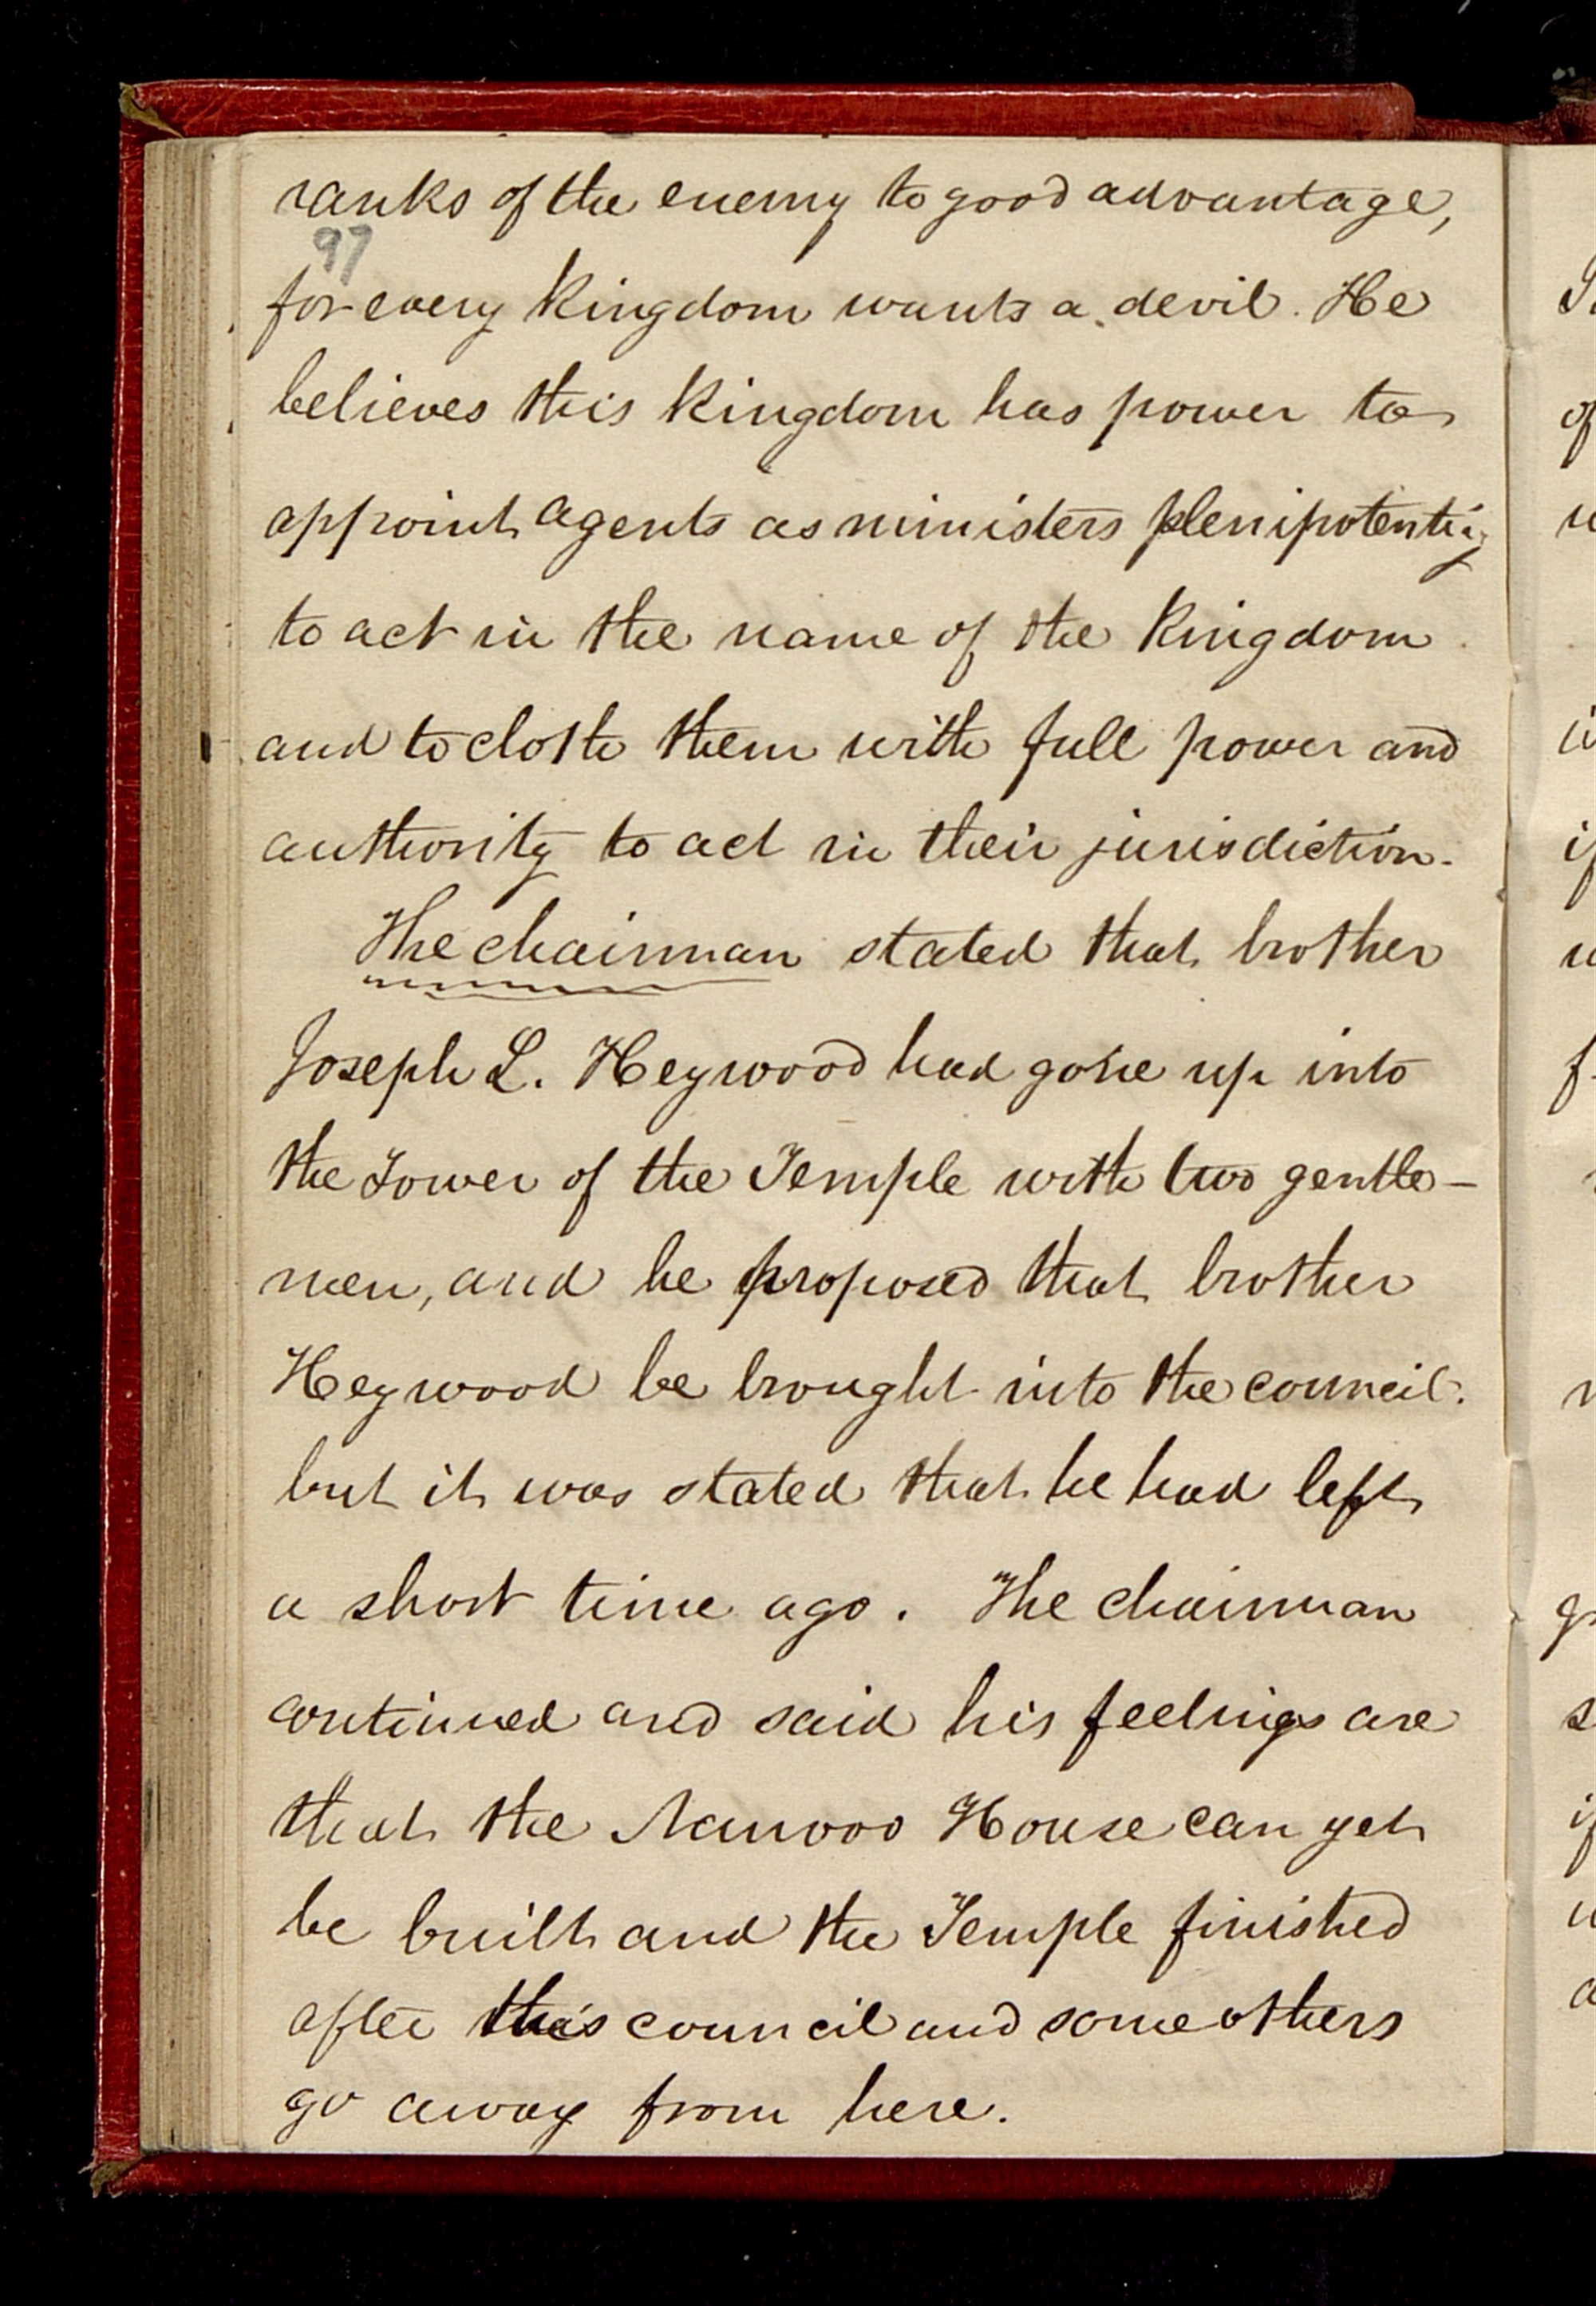 ranks of the enemy to good advantage,
97
for every kingdom wants a devil. He
believes this kingdom has power to
appoint agents as ministers plenipotentia
to act in the name of the kingdom
and to clothe them with full power and
authority to act in their jurisdiction.
The chairman stated that brother
Joseph L. Heywood had gone up into
the Tower of the Temple with two gentle-
men, and he proposed that brother
Heywood be brought into the council.
but it was stated that he had left
a short time ago. The chairman
continued and said his feelings are
that the Nauvoo House can yet
be built and the Temple finished
after this council and some others
go away from here.